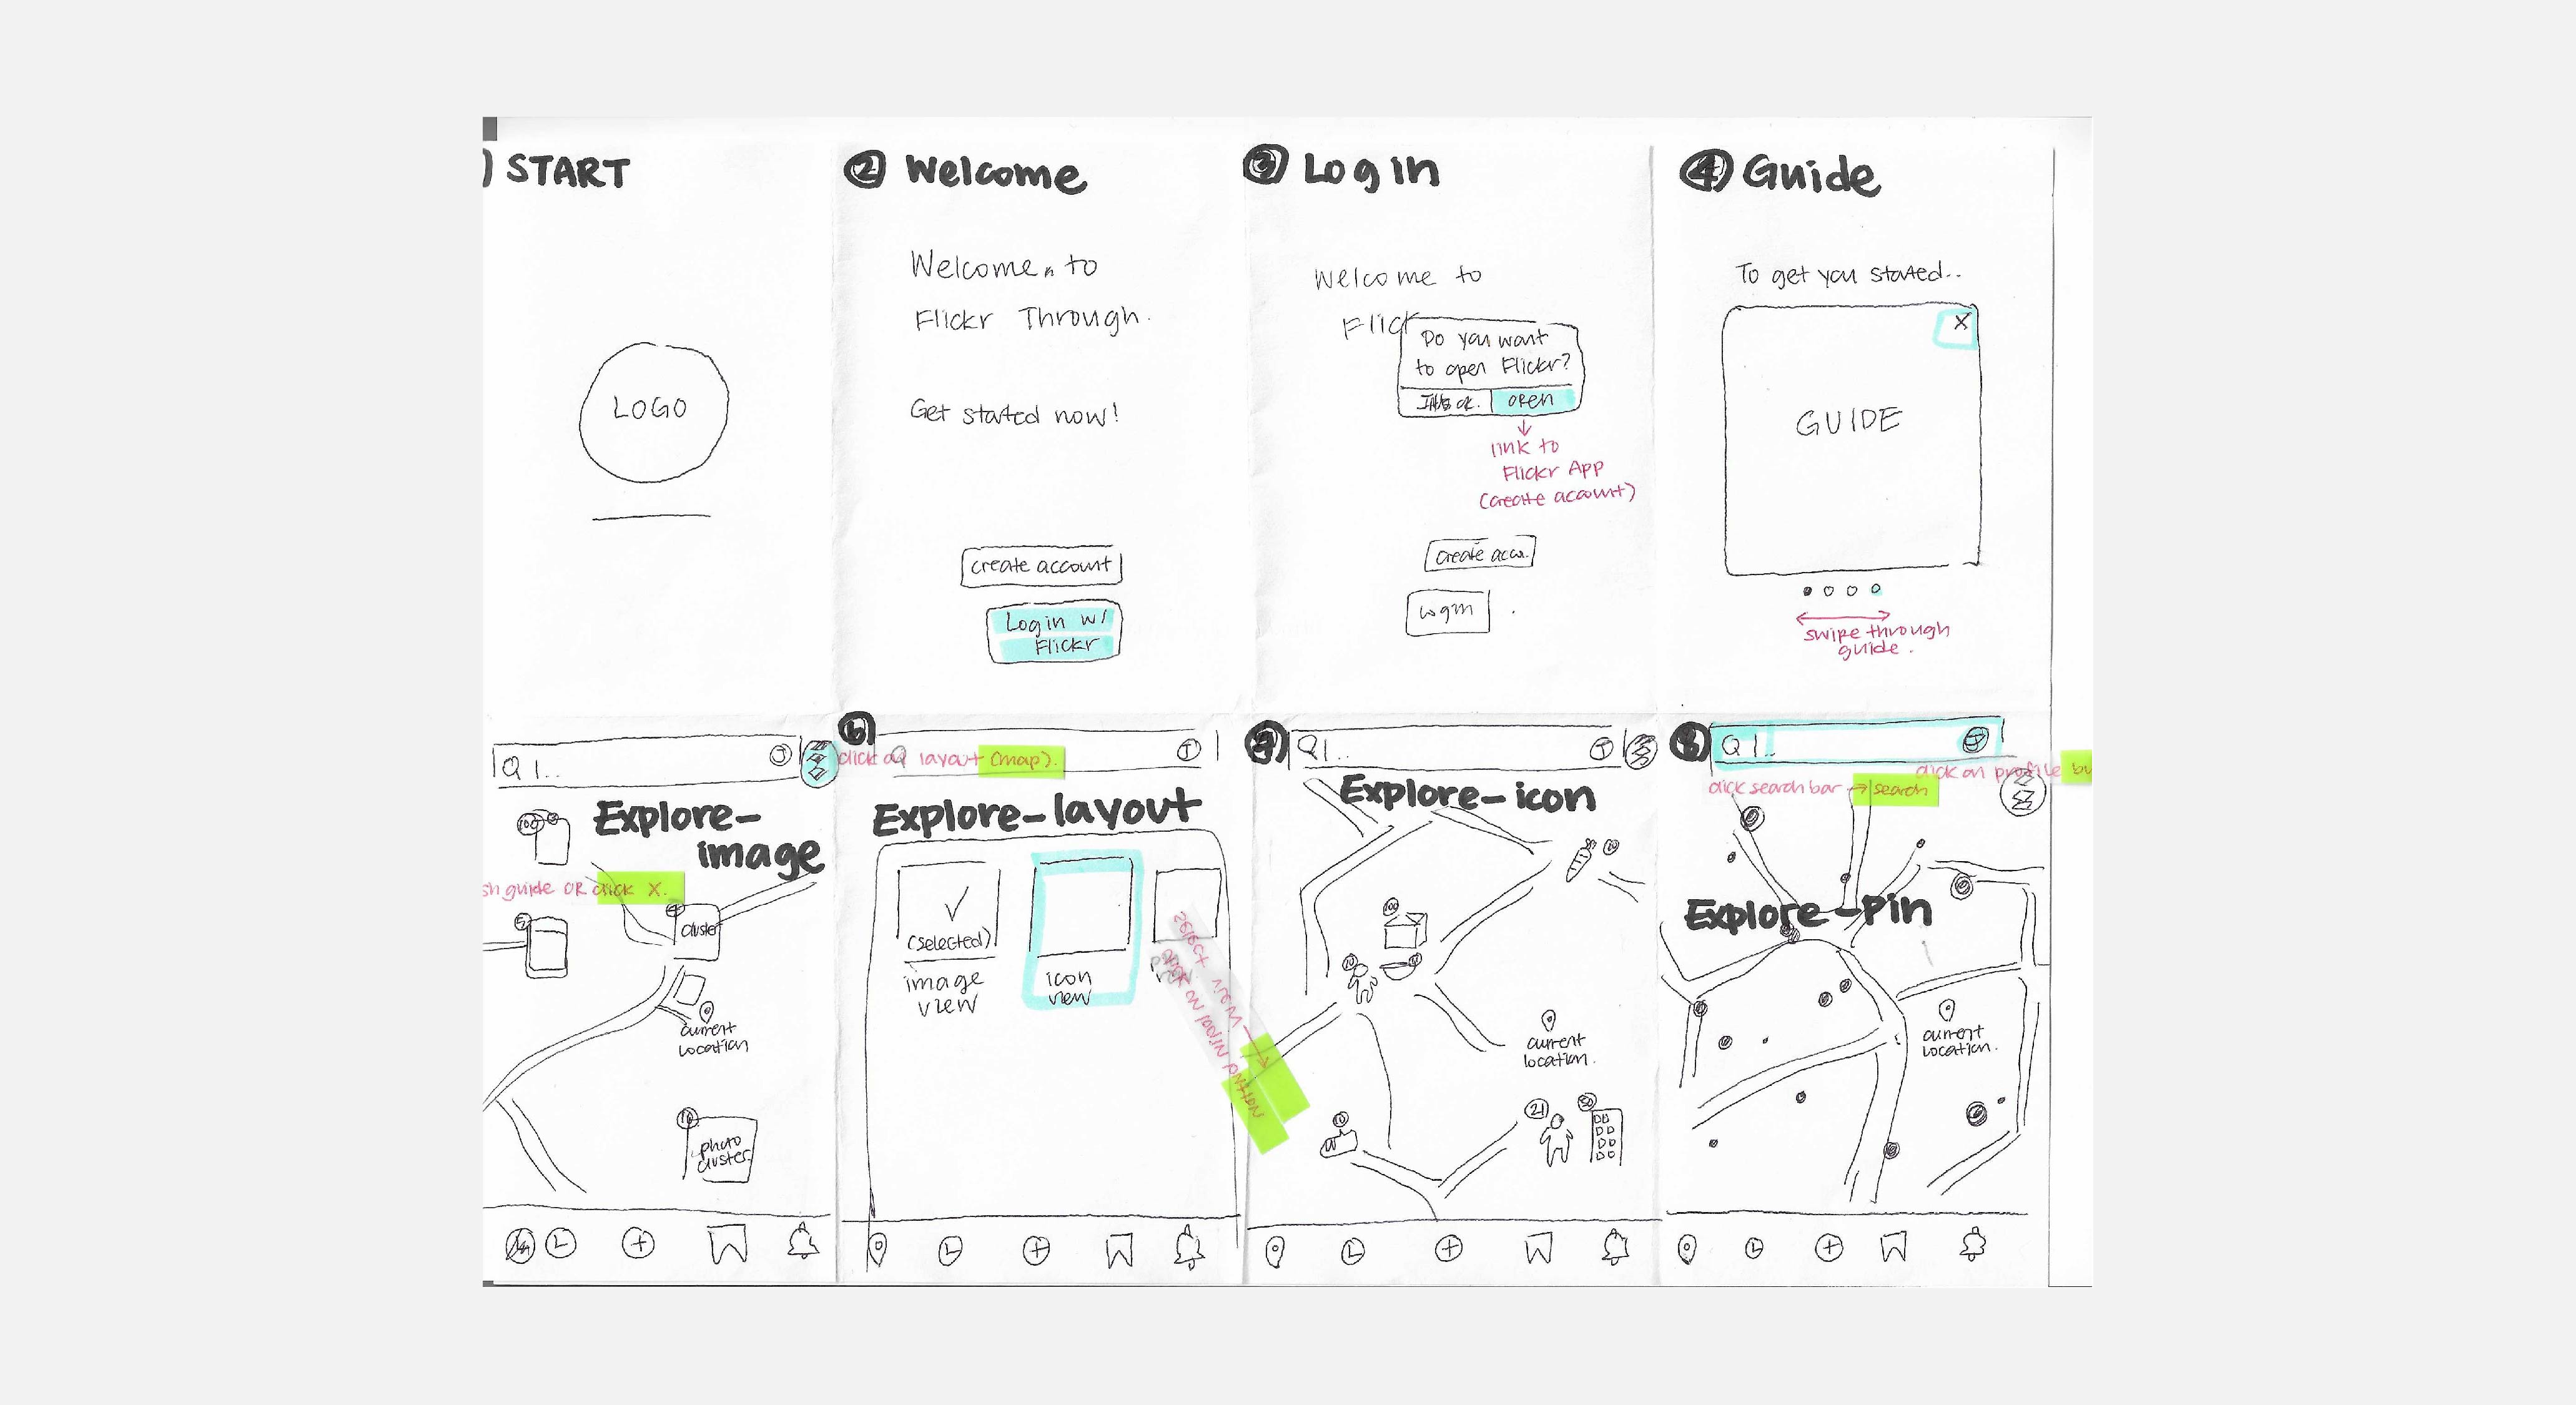 ) START
LOGO
② Welcome
Welcome to
Flickr Through.
Get started now!
create account
Login w/
Flickr
③ Log in
Welcome to
Flick
Do you want
to open Flickr?
OPEN
link to
Flickr App
(create account)
create accu.
Login
④ Guide
To get you started..
X
GUIDE
swipe through
guide.
Q I..
J
Explore-
image
100
sh guide OR click X.
5
4
cluster
current
location
10
photo
cluster
6
click on layout (map).
J
Explore-layout
(selected)
image
view
icon
view
select view →
click on pin button
7
Q I..
J
Explore-icon
10
100
10
10
current
location.
10
21
50
8
Q I..
J
click on profile bu
click search bar → search
Explore-pin
current
location.